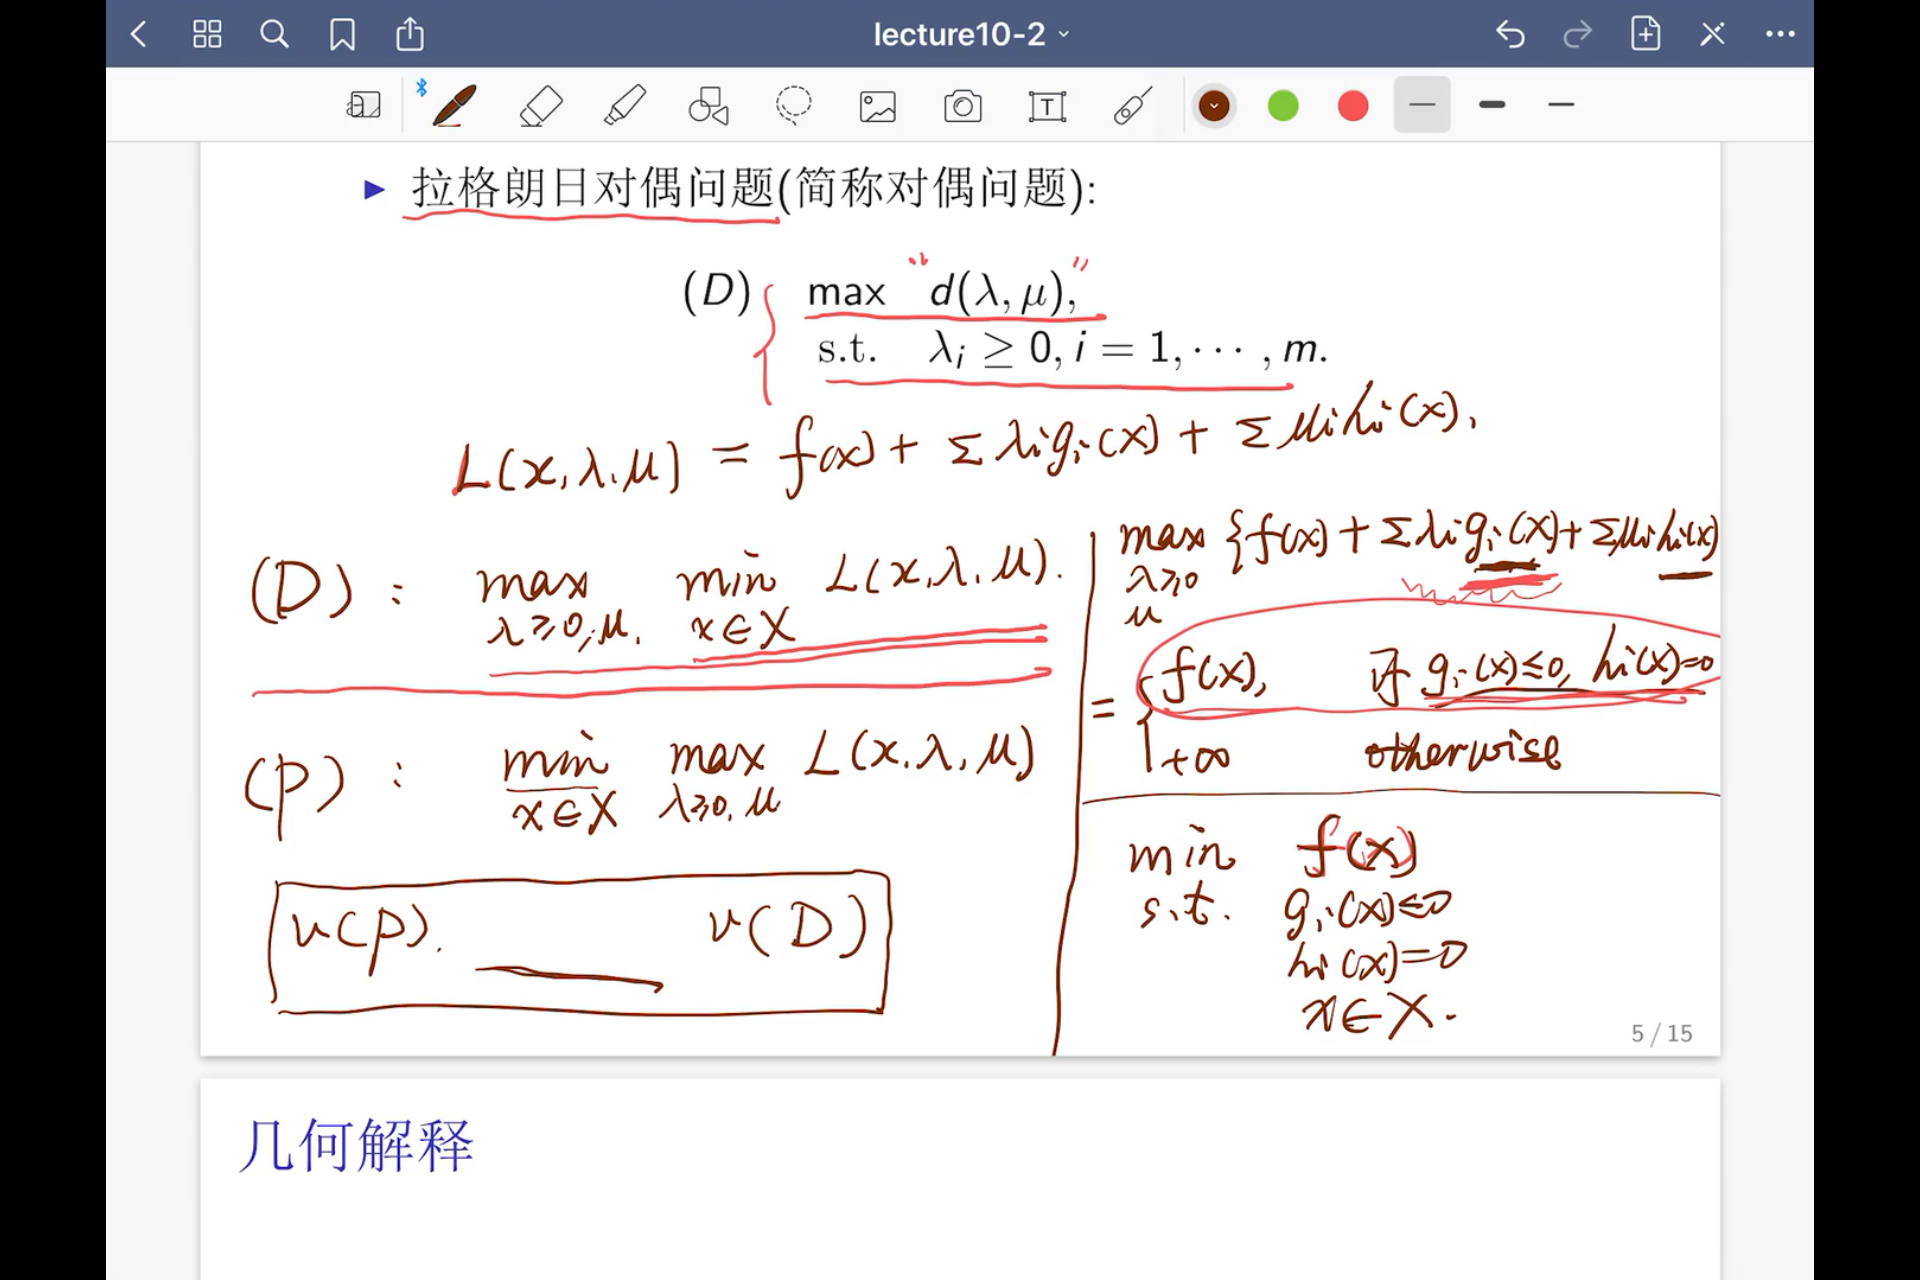 lecture10-2
▶ 拉格朗日对偶问题(简称对偶问题):
(D) max "d(λ, μ),"
s.t. λᵢ ≥ 0, i = 1, ⋯ , m.
L(x, λ, μ) = f(x) + Σ λᵢgᵢ(x) + Σ μᵢhᵢ(x),
(D): max min L(x, λ, μ).
λ≥0, μ, x∈X
(P): min max L(x, λ, μ)
x∈X λ≥0, μ
v(P). v(D)
max {f(x) + Σλᵢgᵢ(x) + Σμᵢhᵢ(x)
λ≥0
μ
= { f(x), if gᵢ(x)≤0, hᵢ(x)=0
+∞ otherwise
min f(x)
s.t. gᵢ(x)≤0
hᵢ(x)=0
x∈X.
5 / 15
几何解释